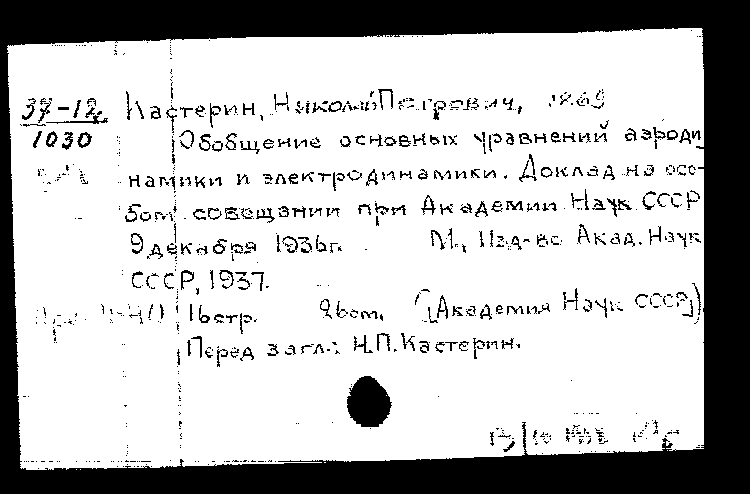 37-12 Кастерин, Николай Петрович, 1869
1030 Обобщение основных уравнений аэроди
намики и электродинамики. Доклад на осо-
бом совещании при Академии Наук СССР
9 декабря 1936г. М., Изд-во Акад. Наук
СССР, 1937.
16стр. 26см. ([Академия Наук СССР])
Перед загл.: Н.П. Кастерин.